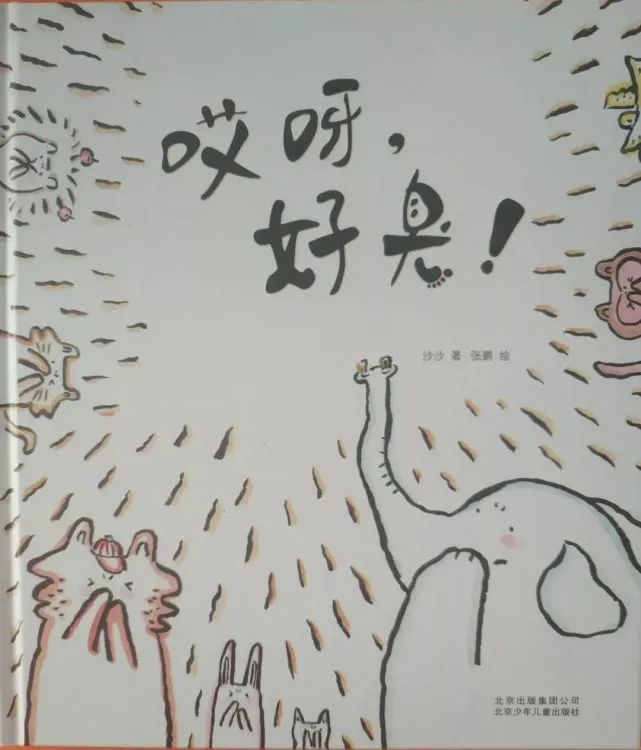 哎呀，
好臭！
沙沙 著 张鹏 绘
北京出版集团公司
北京少年儿童出版社